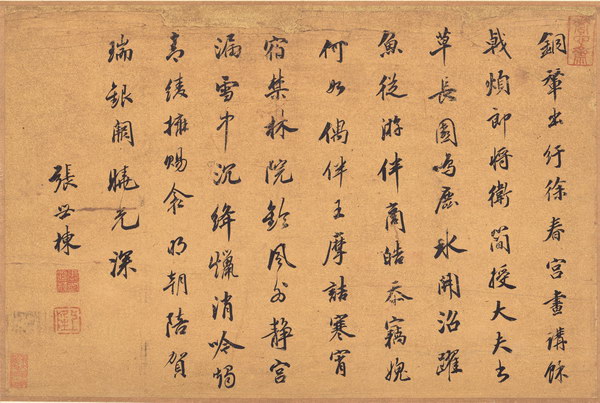 銅輦出行徐春宮晝講餘
戟煩郎將衛簡授大夫書
草長園鳴鹿冰開沼躍
魚從游伴商皓忝竊愧
何如偶伴王摩詰寒宵
宿禁林院鈴風外靜宮
漏雪中沉絳蠟消吟燭
青綾擁賜衾明朝陪賀
瑞銀闕曉光深
張世棟